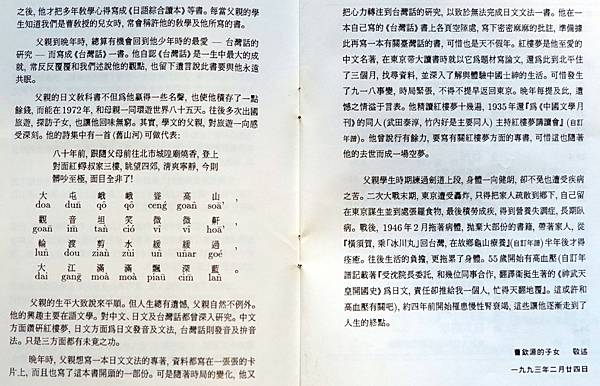 之後，他才把多年教學心得寫成《日語綜合讀本》等書。每當父親的學
生知道我們是曹教授的兒女時，常會稱許他的教學及他所寫的書。
父親到晚年時，總算有機會回到他少年時的最愛 — 台灣話的
研究 — 而寫成《台灣話》一書。他自認《台灣話》是一生中最大的成
就，常反反覆覆和我們述說他的觀點，也留下遺言說此書要與他永遠
共眠。
父親的日文教科書不但爲他贏得一些名聲，也使他積存了一點
餘錢，而能在1972年，和母親一同環遊世界八十五天。往後多次出國
旅遊，探訪子女，也讓他回味無窮。其實，學文的父親，對旅遊一向感
受深刻。他的詩集中有一首《舊山河》可做代表：
八十年前，跟隨父母前往北市城隍廟燒香，登上
對面紅蟳叔家三樓，眺望四郊，清爽寧靜，今則
髒吵至極，面目全非了！
大 屯 峨 峨 聳 高 山，
doa dun qô qô cenģ goan soa，
觀 音 坦 笑 微 微 軒，
goan im tan ció vi vi hoa，
輪 渡 剪 水 緩 緩 過
lun dou zian zùi un unar gôe
大 江 滿 滿 飄 深 藍。
dai gang moà moà piau cim lan
父親的生平大致說來平順。但人生總有遺憾，父親自然不例外。
他的興趣主要在語文學。對中文、日文及台灣話都曾深入研究。中文
方面鑽研紅樓夢，日文方面爲日文發音及文法，台灣話則發音及拚音
法。只是三方面都有未竟之功。
晚年時，父親想寫一本日文文法的專著，資料都寫在一張張的卡
片上，而且也寫了這本書開頭的一部份。可是隨著時局的變化，他又
把心力轉注到台灣話的研究，以致於無法完成日文文法一書。他在一
本自己寫的《台灣話》書上各頁空隙處，寫下密密麻麻的批註，準備據
此再寫一本有關臺灣話的書，可惜也是天不假年。紅樓夢是他至愛的
中文名著，在東京帶大讀書時就以它爲題材寫論文，還爲此到北平住
了三個月，找尋資料，並深入了解與體驗中國士紳的生活。可惜發生
了九一八事變，時局緊張，不得不提早返回東京。晚年每提及此，遺
憾之情溢于言表。他精讀紅樓夢十幾遍，1935年還『爲《中國文學月
刊》的同人（武田泰淳，竹內好是主要同人）主持紅樓夢講讀會』(自訂
年譜)。他曾說行有餘力，要寫有關紅樓夢方面的專書，可惜這也隨著
他的去世而成一場空夢。
父親學生時期練過劍道上段，身體一向健朗，卻不免也遭受疾病
之苦。二次大戰末期，東京遭受轟炸，只得把家人疏散到鄉下，自己留
在東京謀生並到處張羅食物，最後積勞成疾，得到營養失調症，長期臥
病。戰後，1946年2月拖著病體，拋棄大部份的書籍，帶著家人，從
『橫須賀，乘「氷川丸」回台灣，在故鄉龜山療養』(自訂年譜)半年後才得
痊癒。往後生活的負擔，更拖累了身體。55歲開始有高血壓 (自訂年
譜記載著『受沈院長委託，和幾位同事合作，翻譯衛挺生著的《神武天
皇開國史》爲日文，責任卻推給我一個人，忙得天翻地覆』。這或許和
高血壓有關吧)，約四年前開始罹患慢性腎衰竭，這些讓他逐漸走到了
人生的終點。
曹欽源的子女 敬述
一九九三年二月廿四日